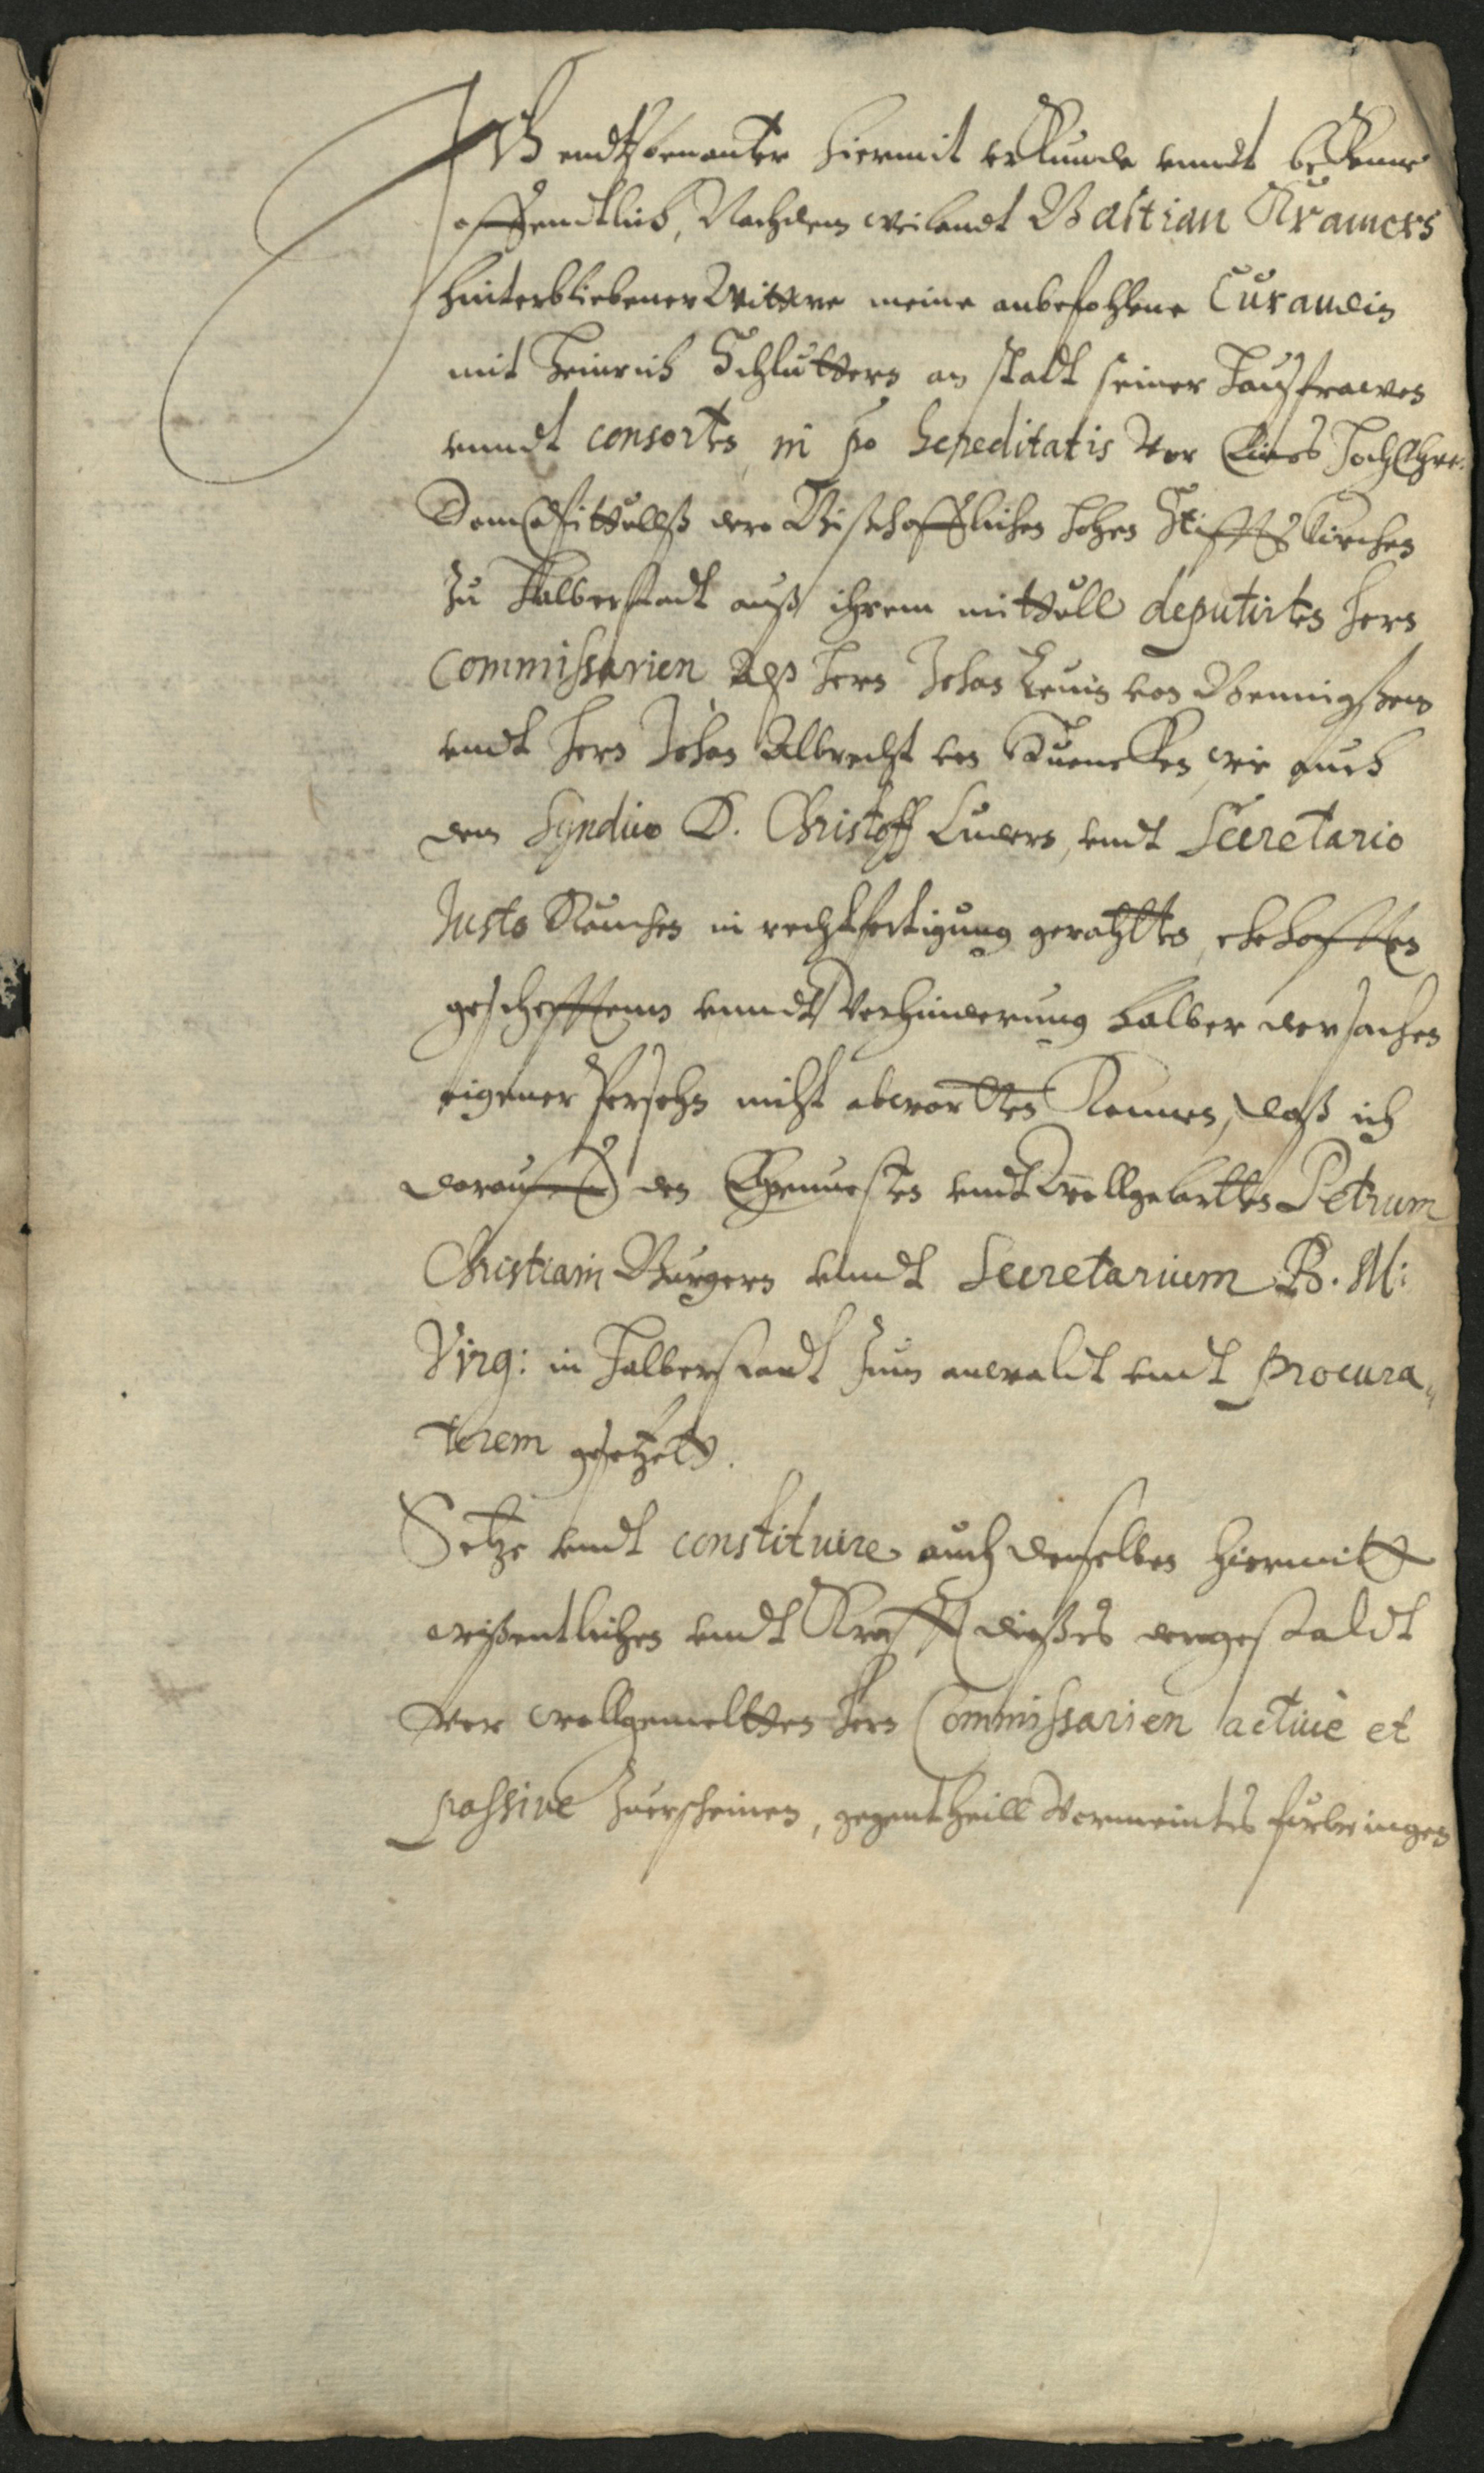 Ich endtsbenanter hiermit erkunde unndt bekenne
offendtlich, Nachdem weilandt Bastian Kramers
hinterbliebener Wittwe meine anbefohlene Curandin
mit Heinrich Schlutters an stadt seiner Haußfrawen
unndt consorten in po hereditatis Vor Eines HochEhrw:
DomCapittullß dero Bischofflichen hohen Stiffts Kirchen
Zu Halberstadt auß ihrem mittull deputirten Hern
Commissarien Alß Hern Johan Levin von Bennigßen
undt Hern Johan Albrecht von wie auch
dem Syndico D. Christoff Luders, undt Secretario
Justo Rauchen in rechtfertigung gerahtten, ehehafften
geschefftenn unndt Verhinderung halber der sachen
eigener Persohn nicht abwartten Konnen, daß ich
darauff den Ehrnvesten undt Wollgelartten Petrum
Christiani Burgern unndt Secretarium B. M:
Virg: in Halberstadt Zum anwaldt undt procura„
torem gesetzett.
Setze undt constituire auch denselben hiermitt
wißentlichen undt Krafft dießes dergestaldt
vor wollgemeltten Hern Commissarien active et
passive Zuerscheinen, gegentheill Vermeintes furbringen